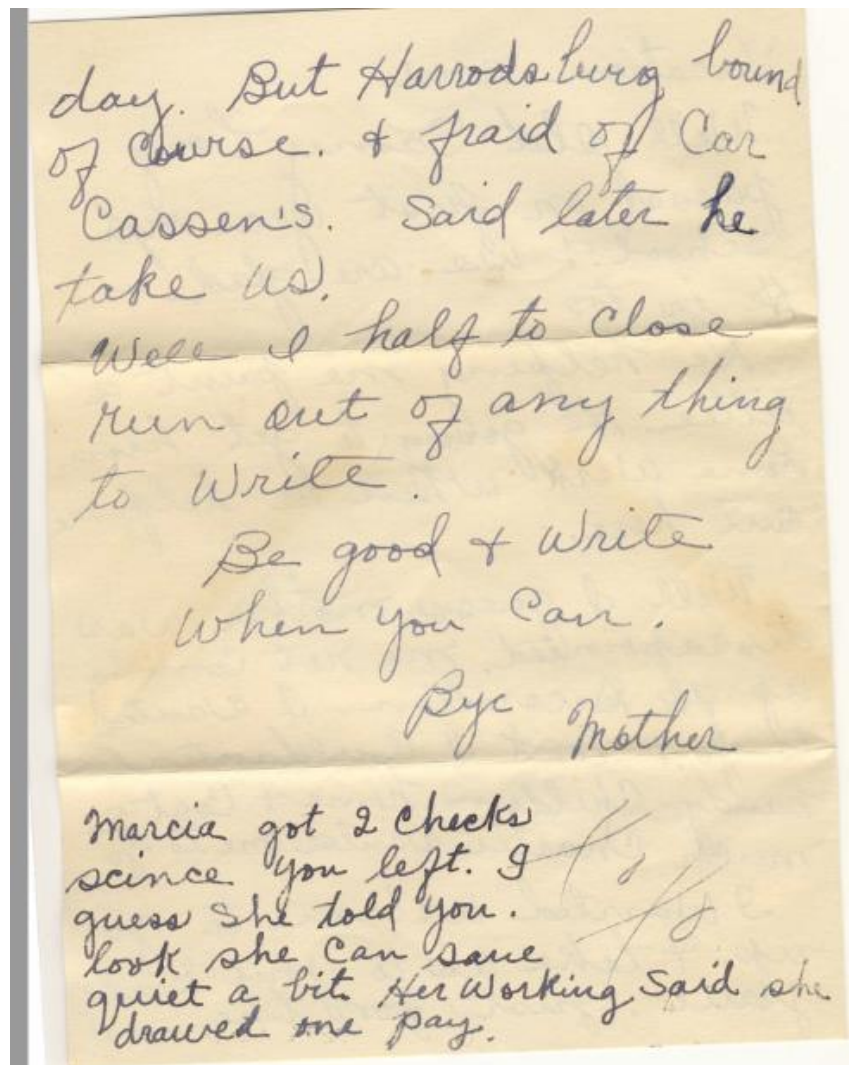 day. But Harrodsburg bound
of Course. & fraid of Car
Cassen's. Said later he
take us.
Well I half to Close
run out of any thing
to Write.
Be good & Write
When you Can.
Bye
Mother
Marcia got 2 Checks
scince you left. I
guess She told you.
look she Can save
quiet a bit. Her Working Said she
drawed one pay.